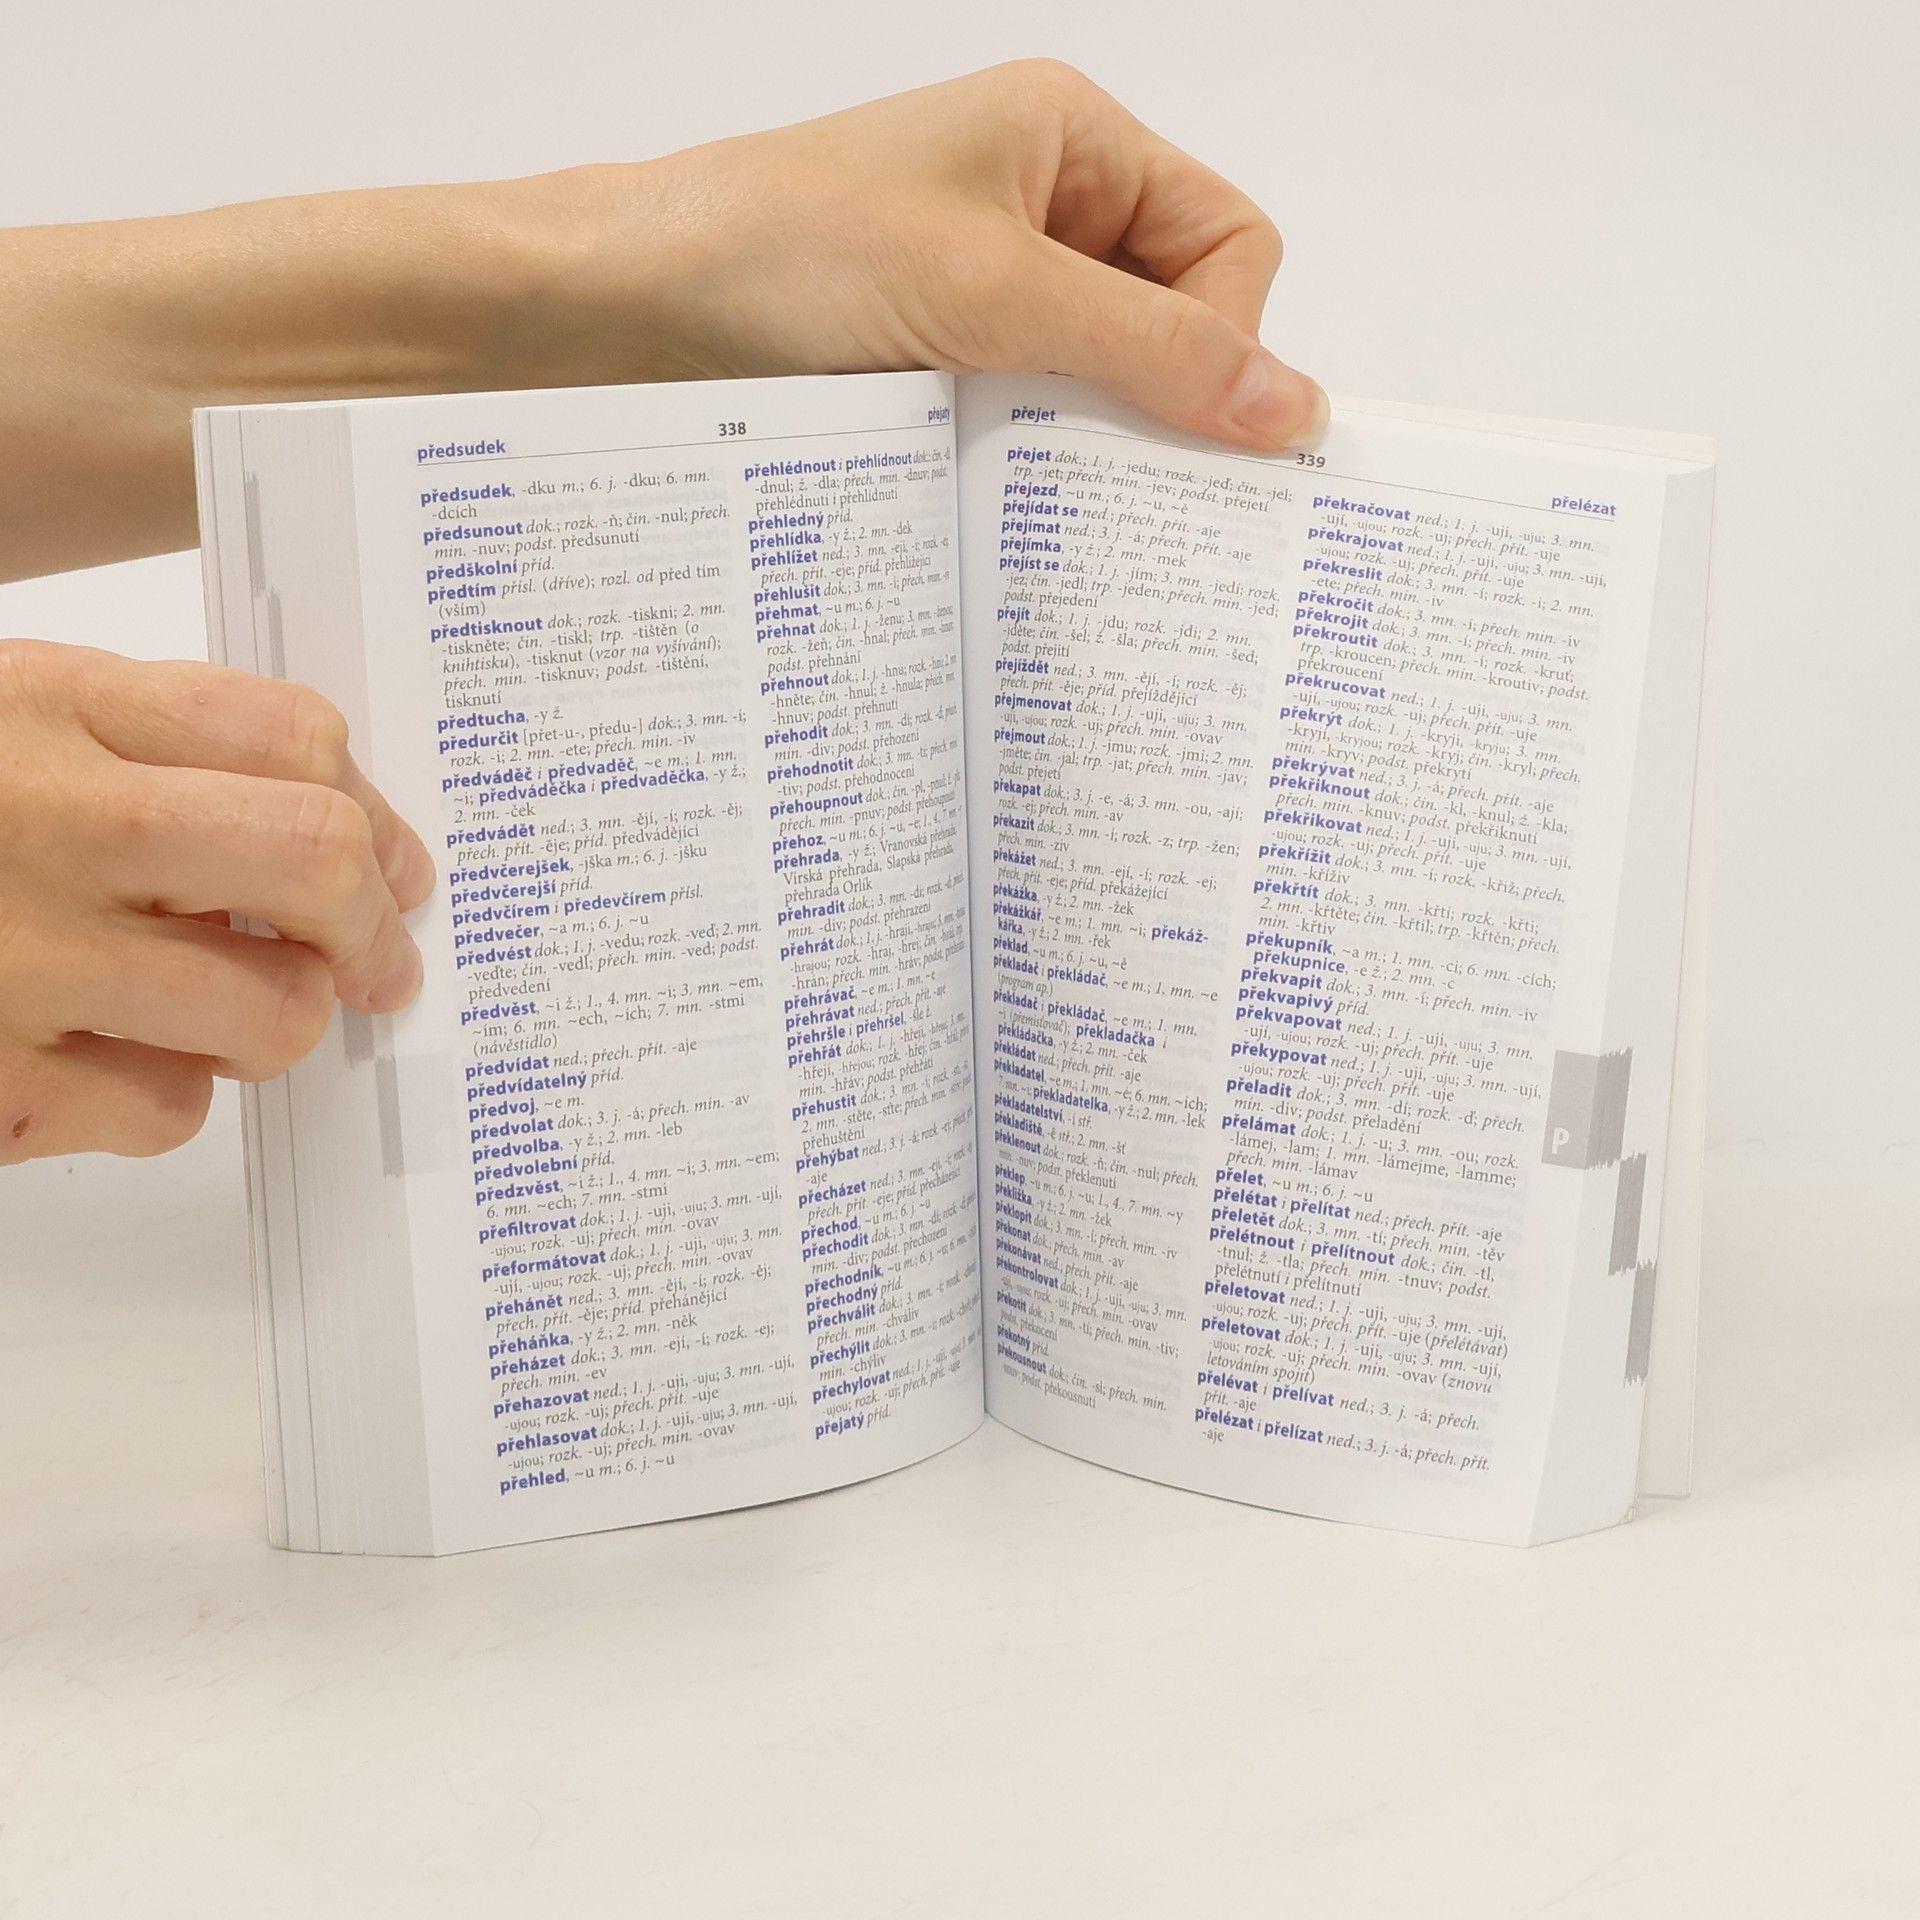 předsudek
338
přejatý
předsudek, -dku m.; 6. j. -dku; 6. mn.
-dcích
předsunout dok.; rozk. -ň; čin. -nul; přech.
min. -nuv; podst. předsunutí
předškolní příd.
předtím přísl. (dříve); rozl. od před tím
(vším)
předtisknout dok.; rozk. -tiskni; 2. mn.
-tiskněte; čin. -tiskl; trp. -tištěn (o
knihtisku), -tisknut (vzor na vyšívání);
přech. min. -tisknuv; podst. -tištění,
tisknutí
předtucha, -y ž.
předurčit [přet-u-, předu-] dok.; 3. mn. -í;
rozk. -i; 2. mn. -ete; přech. min. -iv
předváděč i předvaděč, ~e m.; 1. mn.
~i; předváděčka i předvaděčka, -y ž.;
2. mn. -ček
předvádět ned.; 3. mn. -ějí, -í; rozk. -ěj;
přech. přít. -ěje; příd. předvádějící
předvčerejšek, -jška m.; 6. j. -jšku
předvčerejší příd.
předvčírem i předevčírem přísl.
předvečer, ~a m.; 6. j. ~u
předvést dok.; 1. j. -vedu; rozk. -veď; 2. mn.
-veďte; čin. -vedl; přech. min. -ved; podst.
předvedení
předvěst, ~i ž.; 1., 4. mn. ~i; 3. mn. ~em,
~ím; 6. mn. ~ech, ~ích; 7. mn. -stmi
(návěstidlo)
předvídat ned.; přech. přít. -aje
předvídatelný příd.
předvoj, ~e m.
předvolat dok.; 3. j. -á; přech. min. -av
předvolba, -y ž.; 2. mn. -leb
předvolební příd.
předzvěst, ~i ž.; 1., 4. mn. ~i; 3. mn. ~em;
6. mn. ~ech; 7. mn. -stmi
přefiltrovat dok.; 1. j. -uji, -uju; 3. mn. -ují,
-ujou; rozk. -uj; přech. min. -ovav
přeformátovat dok.; 1. j. -uji, -uju; 3. mn.
-ují, -ujou; rozk. -uj; přech. min. -ovav
přehánět ned.; 3. mn. -ějí, -í; rozk. -ěj;
přech. přít. -ěje; příd. přehánějící
přeháňka, -y ž.; 2. mn. -něk
přeházet dok.; 3. mn. -ejí, -í; rozk. -ej;
přech. min. -ev
přehazovat ned.; 1. j. -uji, -uju; 3. mn. -ují,
-ujou; rozk. -uj; přech. přít. -uje
přehlasovat dok.; 1. j. -uji, -uju; 3. mn. -ují,
-ujou; rozk. -uj; přech. min. -ovav
přehled, ~u m.; 6. j. ~u
přehlédnout i přehlídnout dok.; čin. -dl,
-dnul; ž. -dla; přech. min. -dnuv; podst.
přehlédnutí i přehlídnutí
přehledný příd.
přehlídka, -y ž.; 2. mn. -dek
přehlížet ned.; 3. mn. -ejí, -í; rozk. -ej;
přech. přít. -eje; příd. přehlížející
přehlušit dok.; 3. mn. -í; přech. min. -iv
přehmat, ~u m.; 6. j. ~u
přehnat dok.; 1. j. -ženu; 3. mn. -ženou;
rozk. -žeň; čin. -hnal; přech. min. -hnav;
podst. přehnání
přehnout dok.; 1. j. -hnu; rozk. -hni; 2. mn.
-hněte; čin. -hnul; ž. -hnula; přech. mn.
-hnuv; podst. přehnutí
přehodit dok.; 3. mn. -dí; rozk. -ď; přech.
min. -div; podst. přehození
přehodnotit dok.; 3. mn. -tí; přech. mn.
-tiv; podst. přehodnocení
přehoupnout dok.; čin. -pl, -pnul; ž. -pla;
přech. min. -pnuv; podst. přehoupnutí
přehoz, ~u m.; 6. j. ~u, ~e; 1., 4., 7. mn. ~y
přehrada, -y ž.; Vranovská přehrada,
Vírská přehrada, Slapská přehrada,
přehrada Orlík
přehradit dok.; 3. mn. -dí; rozk. -ď; přech.
min. -div; podst. přehrazení
přehrát dok.; 1. j. -hraji, -hraju; 3. mn. -hrají,
-hrajou; rozk. -hraj, -hrej; čin. -hrál; trp.
-hrán; přech. min. -hráv; podst. přehrání
přehrávač, ~e m.; 1. mn. ~e
přehrávat ned.; přech. přít. -aje
přehršle i přehršel, -šle ž.
přehřát dok.; 1. j. -hřeji, -hřeju; 3. mn.
-hřejí, -hřejou; rozk. -hřej; čin. -hřál; přech.
min. -hřáv; podst. přehřátí
přehustit dok.; 3. mn. -í; rozk. -sti, -sť;
2. mn. -stěte, -sťte; přech. min. -stiv; podst.
přehuštění
přehýbat ned.; 3. j. -á; rozk. -ej; přech. přít.
-aje
přecházet ned.; 3. mn. -ejí, -í; rozk. -ej;
přech. přít. -eje; příd. přecházející
přechod, ~u m.; 6. j. ~u
přechodit dok.; 3. mn. -dí; rozk. -ď; přech.
min. -div; podst. přechození
přechodník, ~u m.; 6. j. ~u; 6. mn. -cích
přechodný příd.
přechválit dok.; 3. mn. -í; rozk. -chval;
přech. min. -chváliv
přechýlit dok.; 3. mn. -í; rozk. -chyl; přech.
min. -chýliv
přechylovat ned.; 1. j. -uji, -uju; 3. mn. -ují,
-ujou; rozk. -uj; přech. přít. -uje
přejatý příd.
přejet
339
přelézat
přejet dok.; 1. j. -jedu; rozk. -jeď; čin. -jel;
trp. -jet; přech. min. -jev; podst. přejetí
přejezd, ~u m.; 6. j. ~u, ~ě
přejídat se ned.; přech. přít. -aje
přejímat ned.; 3. j. -á; přech. přít. -aje
přejímka, -y ž.; 2. mn. -mek
přejíst se dok.; 1. j. -jím; 3. mn. -jedí; rozk.
-jez; čin. -jedl; trp. -jeden; přech. min. -jed;
podst. přejedení
přejít dok.; 1. j. -jdu; rozk. -jdi; 2. mn.
-jděte; čin. -šel; ž. -šla; přech. min. -šed;
podst. přejití
přejíždět ned.; 3. mn. -ějí, -í; rozk. -ěj;
přech. přít. -ěje; příd. přejíždějící
přejmenovat dok.; 1. j. -uji, -uju; 3. mn.
-ují, -ujou; rozk. -uj; přech. min. -ovav
přejmout dok.; 1. j. -jmu; rozk. -jmi; 2. mn.
-jměte; čin. -jal; trp. -jat; přech. min. -jav;
podst. přejetí
překapat dok.; 3. j. -e, -á; 3. mn. -ou, -ají;
rozk. -ej; přech. min. -av
překazit dok.; 3. mn. -í; rozk. -z; trp. -žen;
přech. min. -ziv
překážet ned.; 3. mn. -ejí, -í; rozk. -ej;
přech. přít. -eje; příd. překážející
překážka, -y ž.; 2. mn. -žek
překážkář, ~e m.; 1. mn. ~i; překáž-
kářka, -y ž.; 2. mn. -řek
překlad, ~u m.; 6. j. ~u, ~ě
překladač i překládač, ~e m.; 1. mn. ~e
(program ap.)
překladač i překládač, ~e m.; 1. mn.
~i (přemisťovač); překladačka i
překládačka, -y ž.; 2. mn. -ček
překládat ned.; přech. přít. -aje
překladatel, ~e m.; 1. mn. ~é; 6. mn. ~ích;
7. mn. ~i; překladatelka, -y ž.; 2. mn. -lek
překladatelství, -í stř.
překladiště, -ě stř.; 2. mn. -šť
překlenout dok.; rozk. -ň; čin. -nul; přech.
min. -nuv; podst. překlenutí
překlep, ~u m.; 6. j. ~u; 1., 4., 7. mn. ~y
překližka, -y ž.; 2. mn. -žek
překlopit dok.; 3. mn. -í; přech. min. -iv
překonat dok.; přech. min. -av
překonávat ned.; přech. přít. -aje
překontrolovat dok.; 1. j. -uji, -uju; 3. mn.
-ují, -ujou; rozk. -uj; přech. min. -ovav
překotit dok.; 3. mn. -tí; přech. min. -tiv;
podst. překocení
překotný příd.
překousnout dok.; čin. -sl; přech. min.
-snuv; podst. překousnutí
překračovat ned.; 1. j. -uji, -uju; 3. mn.
-ují, -ujou; rozk. -uj; přech. přít. -uje
překrajovat ned.; 1. j. -uji, -uju; 3. mn. -ují,
-ujou; rozk. -uj; přech. přít. -uje
překreslit dok.; 3. mn. -í; rozk. -i; 2. mn.
-ete; přech. min. -iv
překročit dok.; 3. mn. -í; přech. min. -iv
překrojit dok.; 3. mn. -í; přech. min. -iv
překroutit dok.; 3. mn. -í; rozk. -kruť;
trp. -kroucen; přech. min. -kroutiv; podst.
překroucení
překrucovat ned.; 1. j. -uji, -uju; 3. mn.
-ují, -ujou; rozk. -uj; přech. přít. -uje
překrýt dok.; 1. j. -kryji, -kryju; 3. mn.
-kryjí, -kryjou; rozk. -kryj; čin. -kryl; přech.
min. -kryv; podst. překrytí
překrývat ned.; 3. j. -á; přech. přít. -aje
překřiknout dok.; čin. -kl, -knul; ž. -kla;
přech. min. -knuv; podst. překřiknutí
překřikovat ned.; 1. j. -uji, -uju; 3. mn. -ují,
-ujou; rozk. -uj; přech. přít. -uje
překřížit dok.; 3. mn. -í; rozk. -křiž; přech.
min. -kříživ
překřtít dok.; 3. mn. -křtí; rozk. -křti;
2. mn. -křtěte; čin. -křtil; trp. -křtěn; přech.
min. -křtiv
překupník, ~a m.; 1. mn. -ci; 6. mn. -cích;
překupnice, -e ž.; 2. mn. -c
překvapit dok.; 3. mn. -í; přech. min. -iv
překvapivý příd.
překvapovat ned.; 1. j. -uji, -uju; 3. mn.
-ují, -ujou; rozk. -uj; přech. přít. -uje
překypovat ned.; 1. j. -uji, -uju; 3. mn. -ují,
-ujou; rozk. -uj; přech. přít. -uje
přeladit dok.; 3. mn. -dí; rozk. -ď; přech.
min. -div; podst. přeladění
přelámat dok.; 1. j. -u; 3. mn. -ou; rozk.
-lámej, -lam; 1. mn. -lámejme, -lamme;
přech. min. -lámav
přelet, ~u m.; 6. j. ~u
přelétat i přelítat ned.; přech. přít. -aje
přeletět dok.; 3. mn. -tí; přech. min. -těv
přelétnout i přelítnout dok.; čin. -tl,
-tnul; ž. -tla; přech. min. -tnuv; podst.
přelétnutí i přelítnutí
přeletovat ned.; 1. j. -uji, -uju; 3. mn. -ují,
-ujou; rozk. -uj; přech. přít. -uje (přelétávat)
přeletovat dok.; 1. j. -uji, -uju; 3. mn. -ují,
-ujou; rozk. -uj; přech. min. -ovav (znovu
letováním spojit)
přelévat i přelívat ned.; 3. j. -á; přech.
přít. -aje
přelézat i přelízat ned.; 3. j. -á; přech. přít.
-aje
P